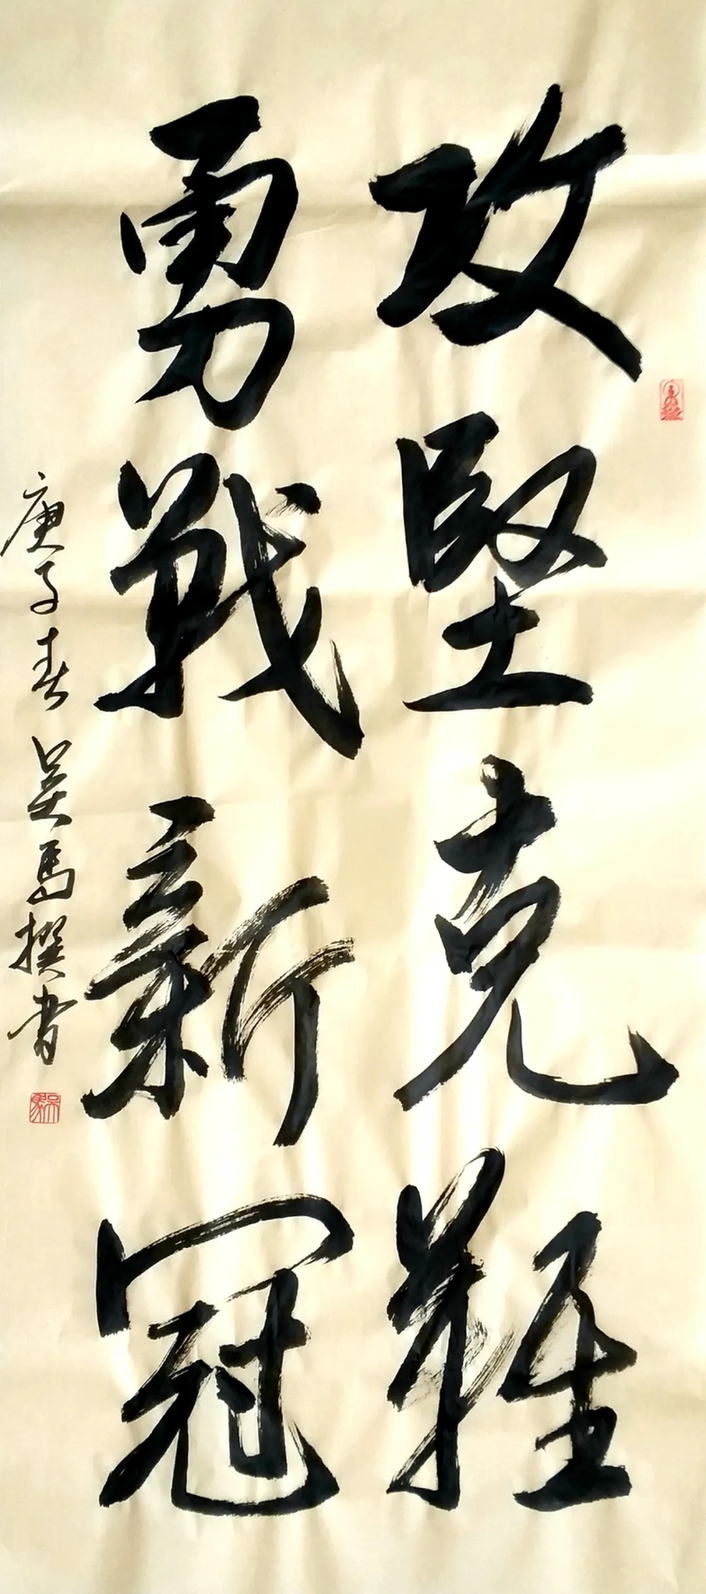 攻堅克難
勇戰新冠
庚子春 吴馬撰书